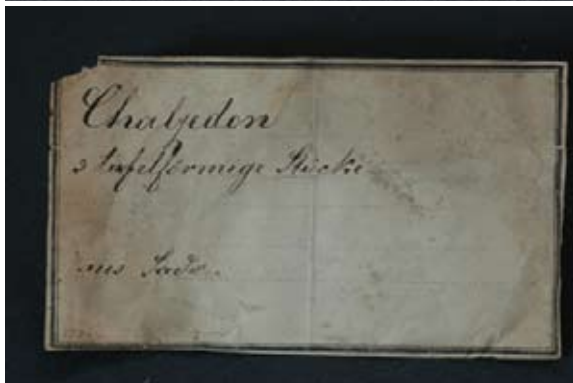 Chalzedon
3 tafelförmige Stücke
aus